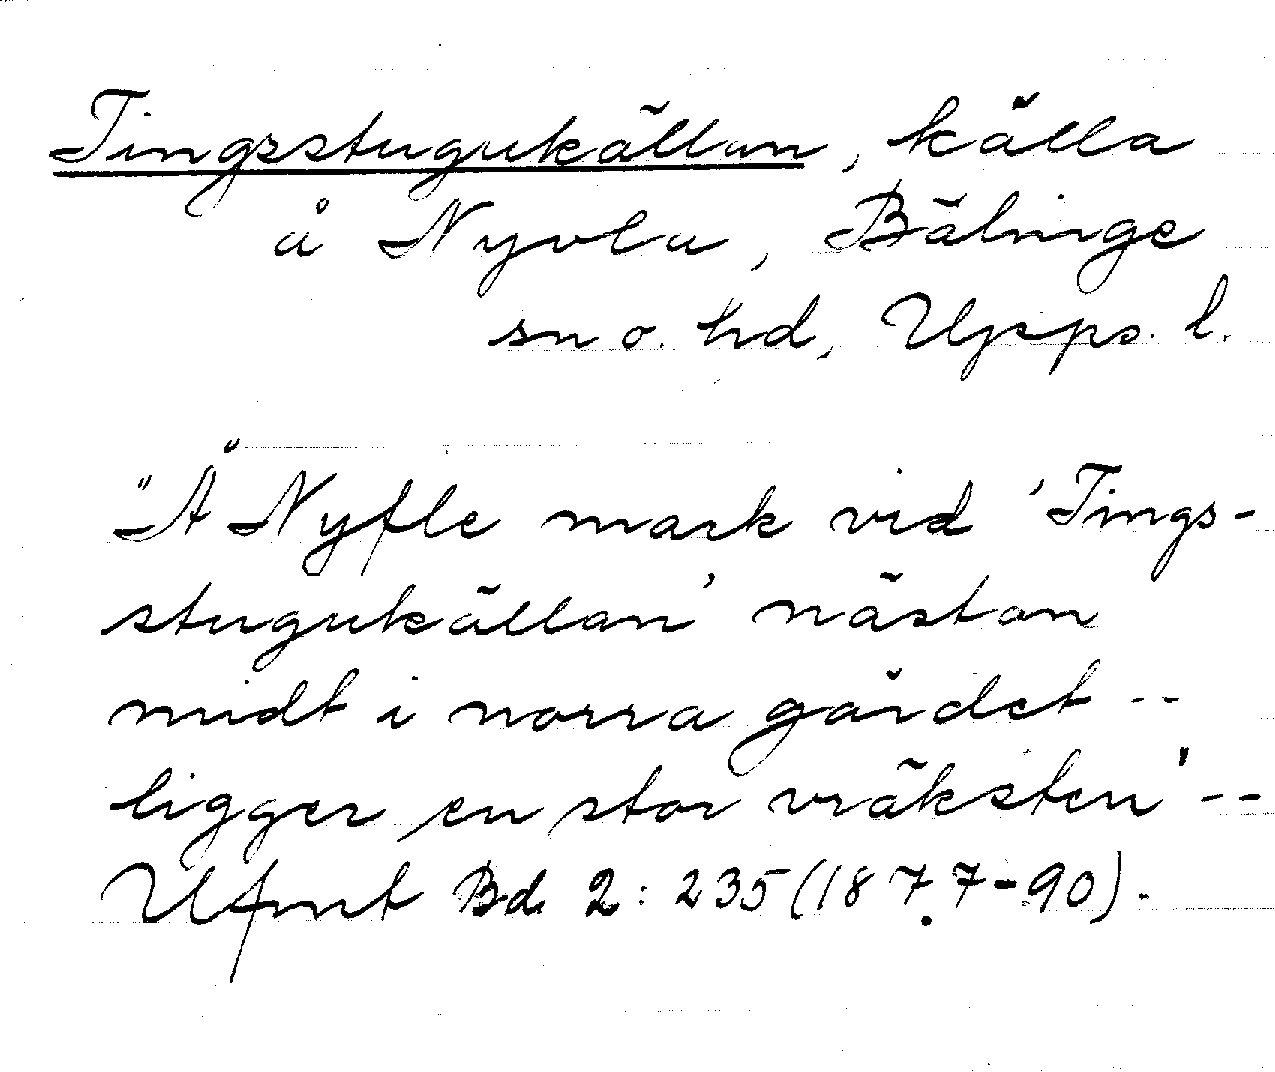 Tingsstugukällan, källa
å Nyvla, Bälinge
sn o. hd, Upps. l.
"Å Nyfle mark vid 'Tings-
stugukällan' nästan
midt i norra gärdet --
ligger en stor vräksten" --
Ufmt Bd. 2: 235 (1877-90).